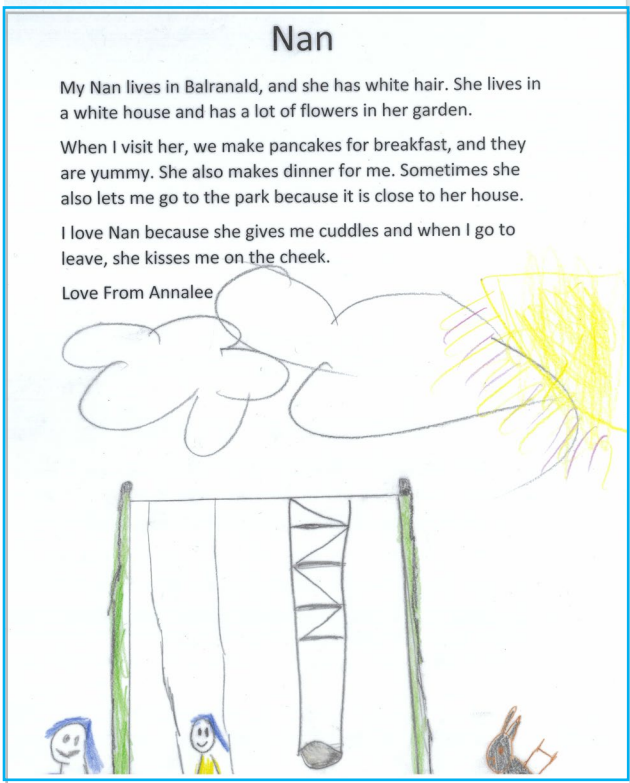 Nan
My Nan lives in Balranald, and she has white hair. She lives in
a white house and has a lot of flowers in her garden.
When I visit her, we make pancakes for breakfast, and they
are yummy. She also makes dinner for me. Sometimes she
also lets me go to the park because it is close to her house.
I love Nan because she gives me cuddles and when I go to
leave, she kisses me on the cheek.
Love From Annalee